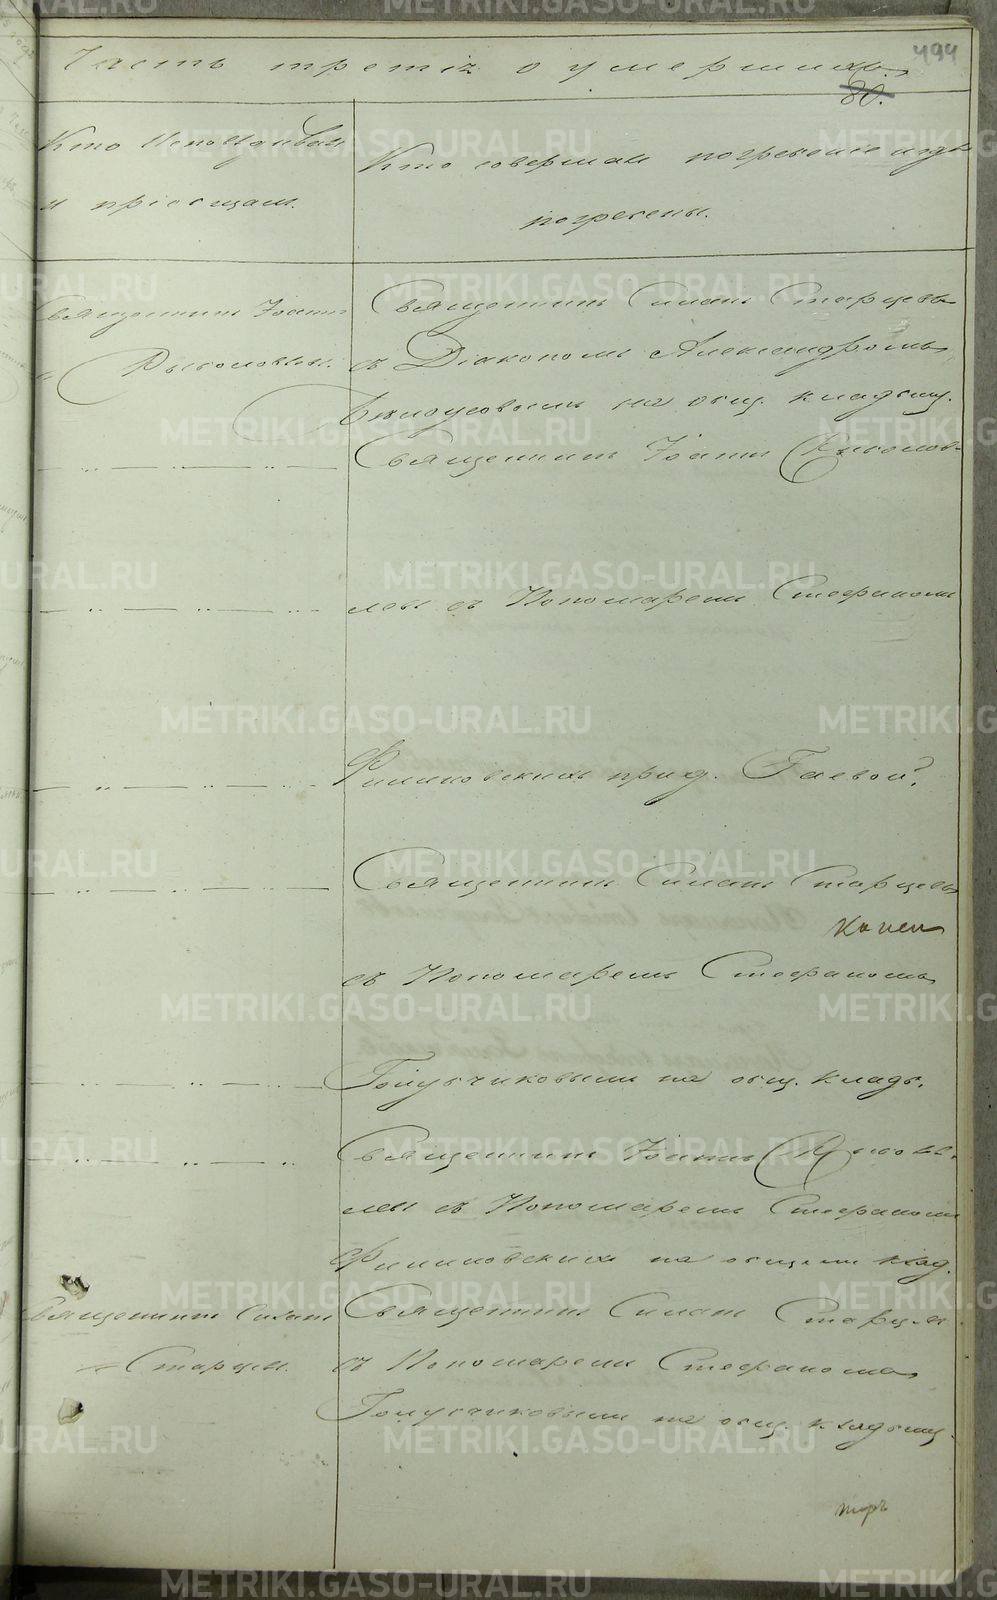 Часть третія о умершихъ.
494
80.
Кто Исповѣдывал
и пріобщалъ.
Кто совершал погребеніе и гдѣ
погребены.
Священникъ Іоаннъ
Рыболовлевъ.
Священникъ Симеонъ Старцевъ
съ Діакономъ Александромъ
Бѣлоусовымъ на общ. кладбищ.
Священникъ Іоаннъ Рыболов-
левъ съ Пономаремъ Стефаномъ
Филиповскимъ приход.
Священникъ Симеонъ Старцевъ
съ Пономаремъ Стефаномъ
Голубчиковымъ на общ. кладб.
Священникъ Іоаннъ Рыболов-
левъ съ Пономаремъ Стефаномъ
Филиповскимъ на общемъ клад.
Священникъ Симеонъ
Старцевъ
Священникъ Симеонъ Старцев
съ Пономаремъ Стефаномъ
Голубчиковымъ на общ. кладбищ.
METRIKI.GASO-URAL.RU